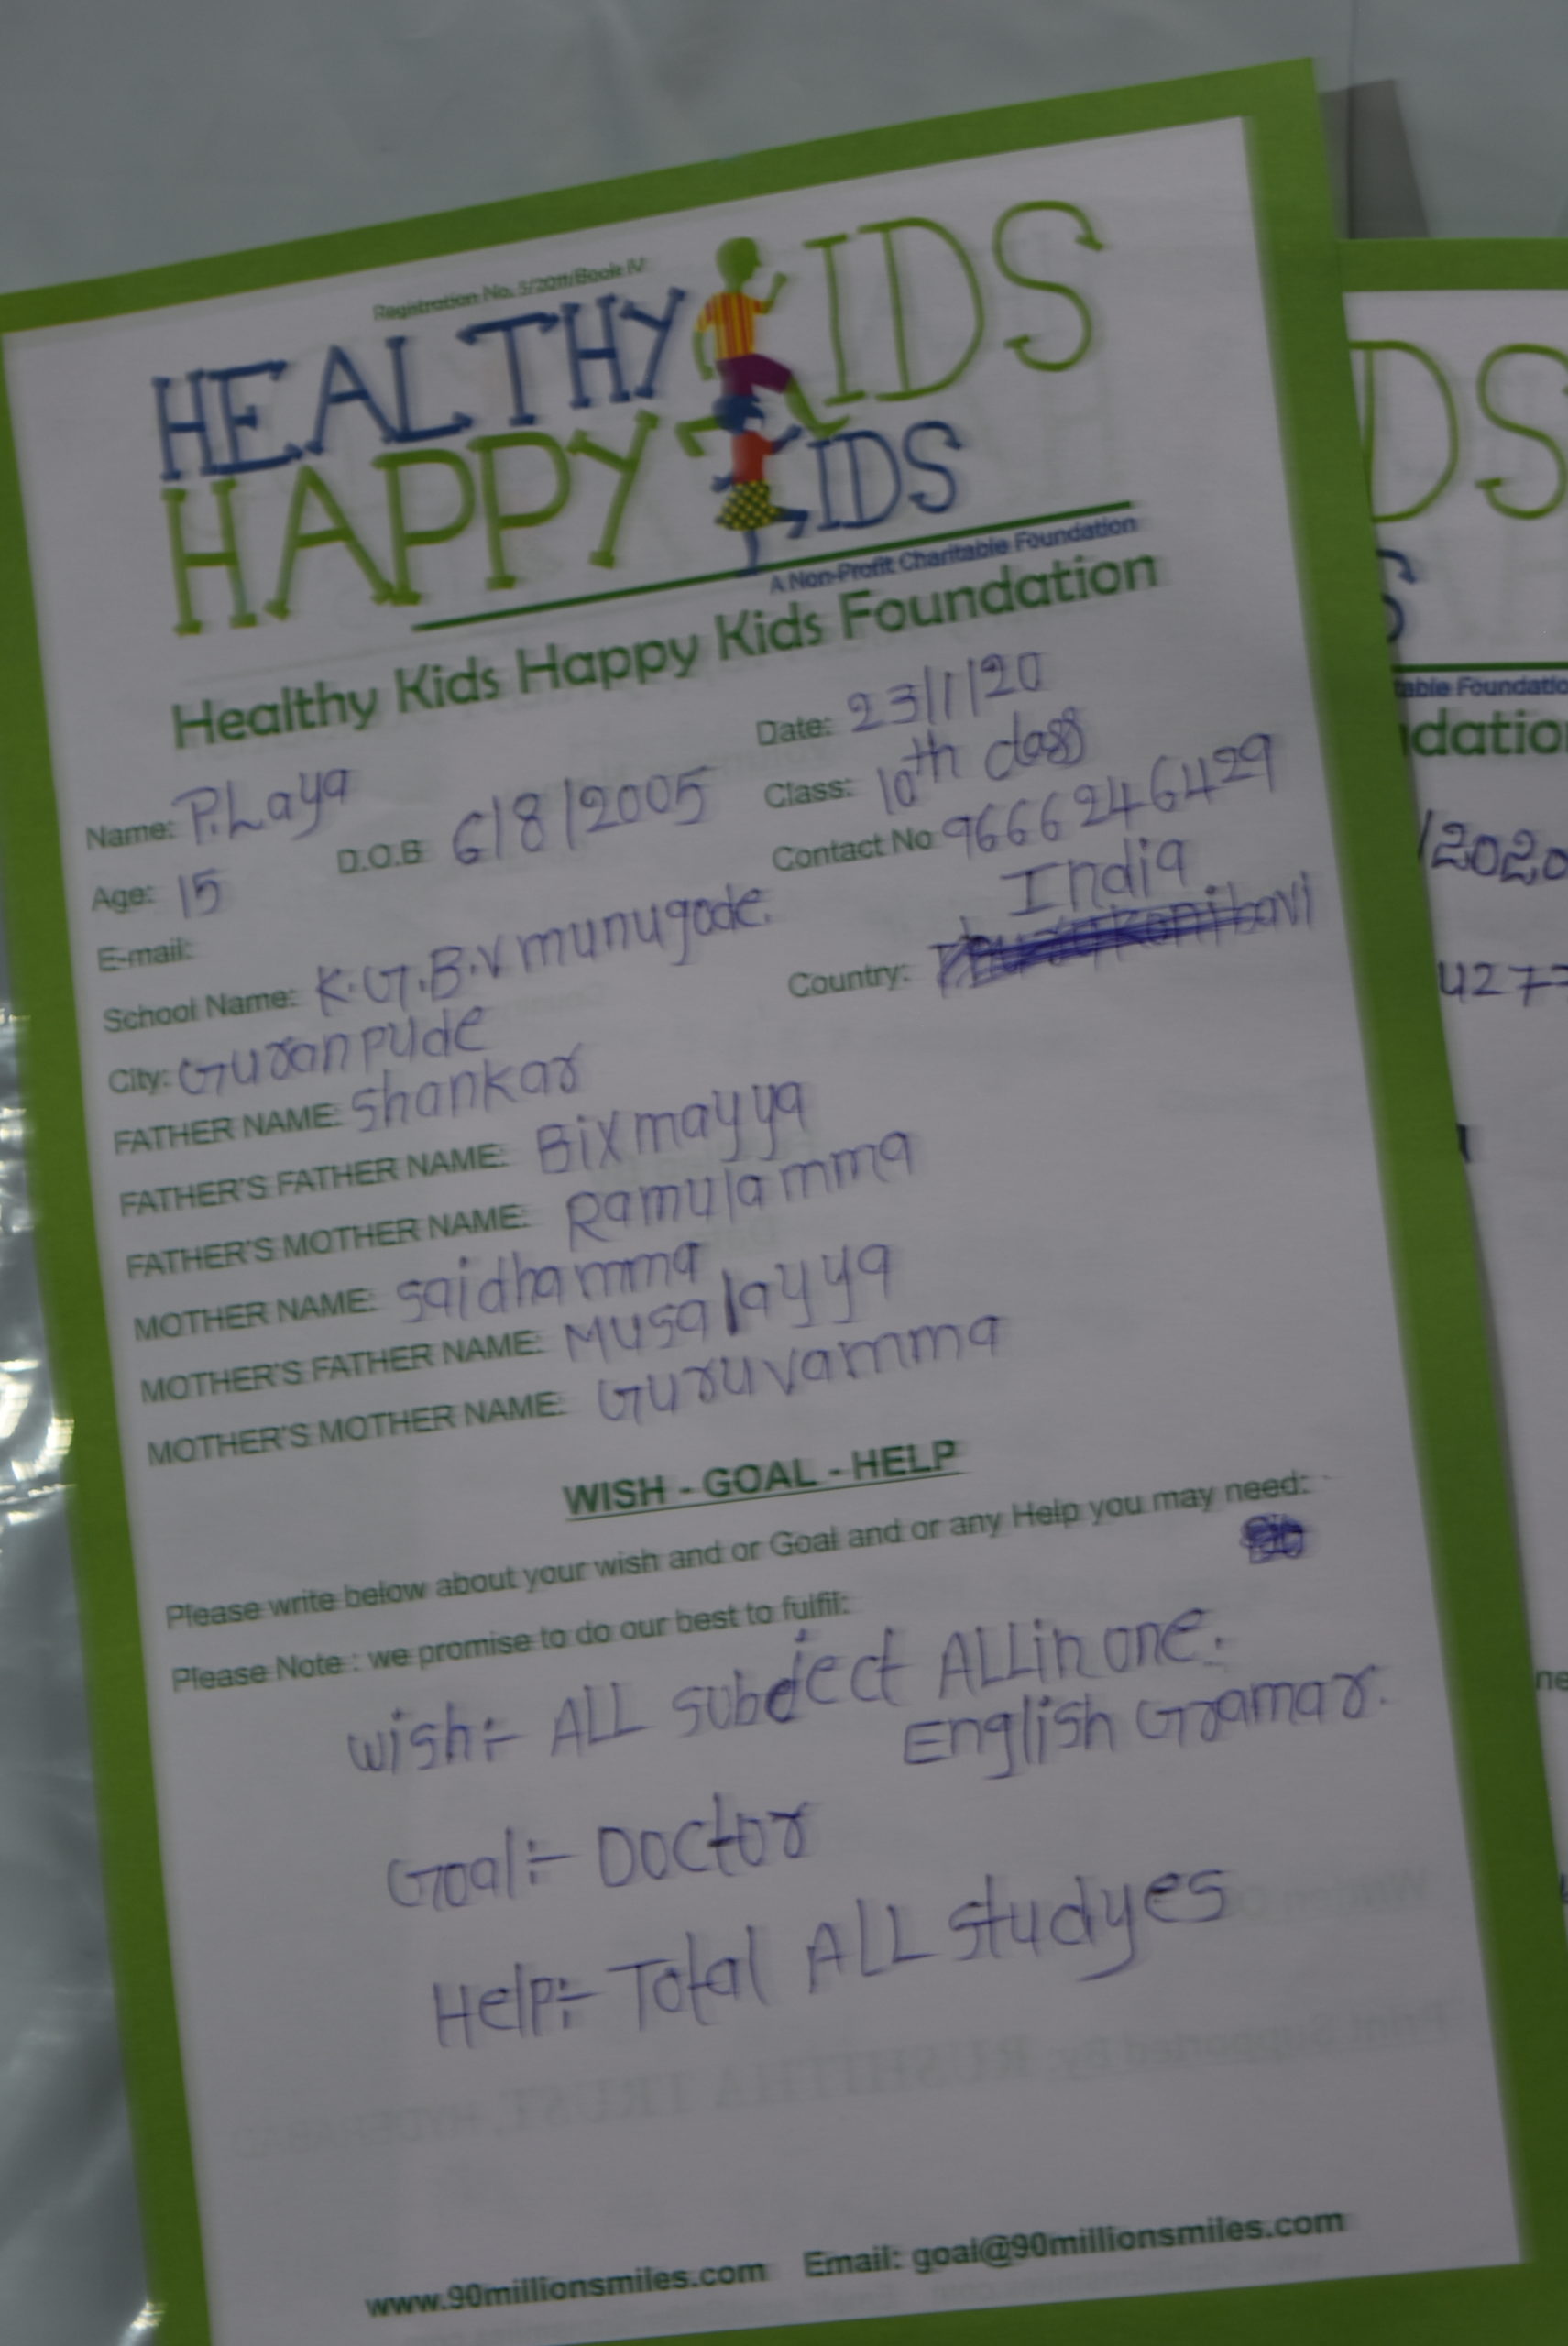 Registration No. 5/2011/Book IV
HEALTHY KIDS
HAPPY KIDS
A Non-Profit Charitable Foundation
Healthy Kids Happy Kids Foundation
Date: 23/1/20
Name: P.Laya
Class: 10th class
Age: 15 D.O.B 6/8/2005
Contact No 9666246429
E-mail:
India
School Name: K.G.B.V munugode.
Country:
City: Guranpude
FATHER NAME: Shankar
FATHER'S FATHER NAME: Bixmayya
FATHER'S MOTHER NAME: Ramulamma
MOTHER NAME: Saidhamma
MOTHER'S FATHER NAME: Musalayya
MOTHER'S MOTHER NAME: Guruvamma
WISH - GOAL - HELP
Please write below about your wish and or Goal and or any Help you may need:
Please Note : we promise to do our best to fulfil:
wish:- ALL subject ALLin one.
English Gramar.
Goal:- Doctor
Help:- Total ALL studyes
www.90millionsmiles.com Email: goal@90millionsmiles.com
IDS
table Foundatio
dation
/2020
4277